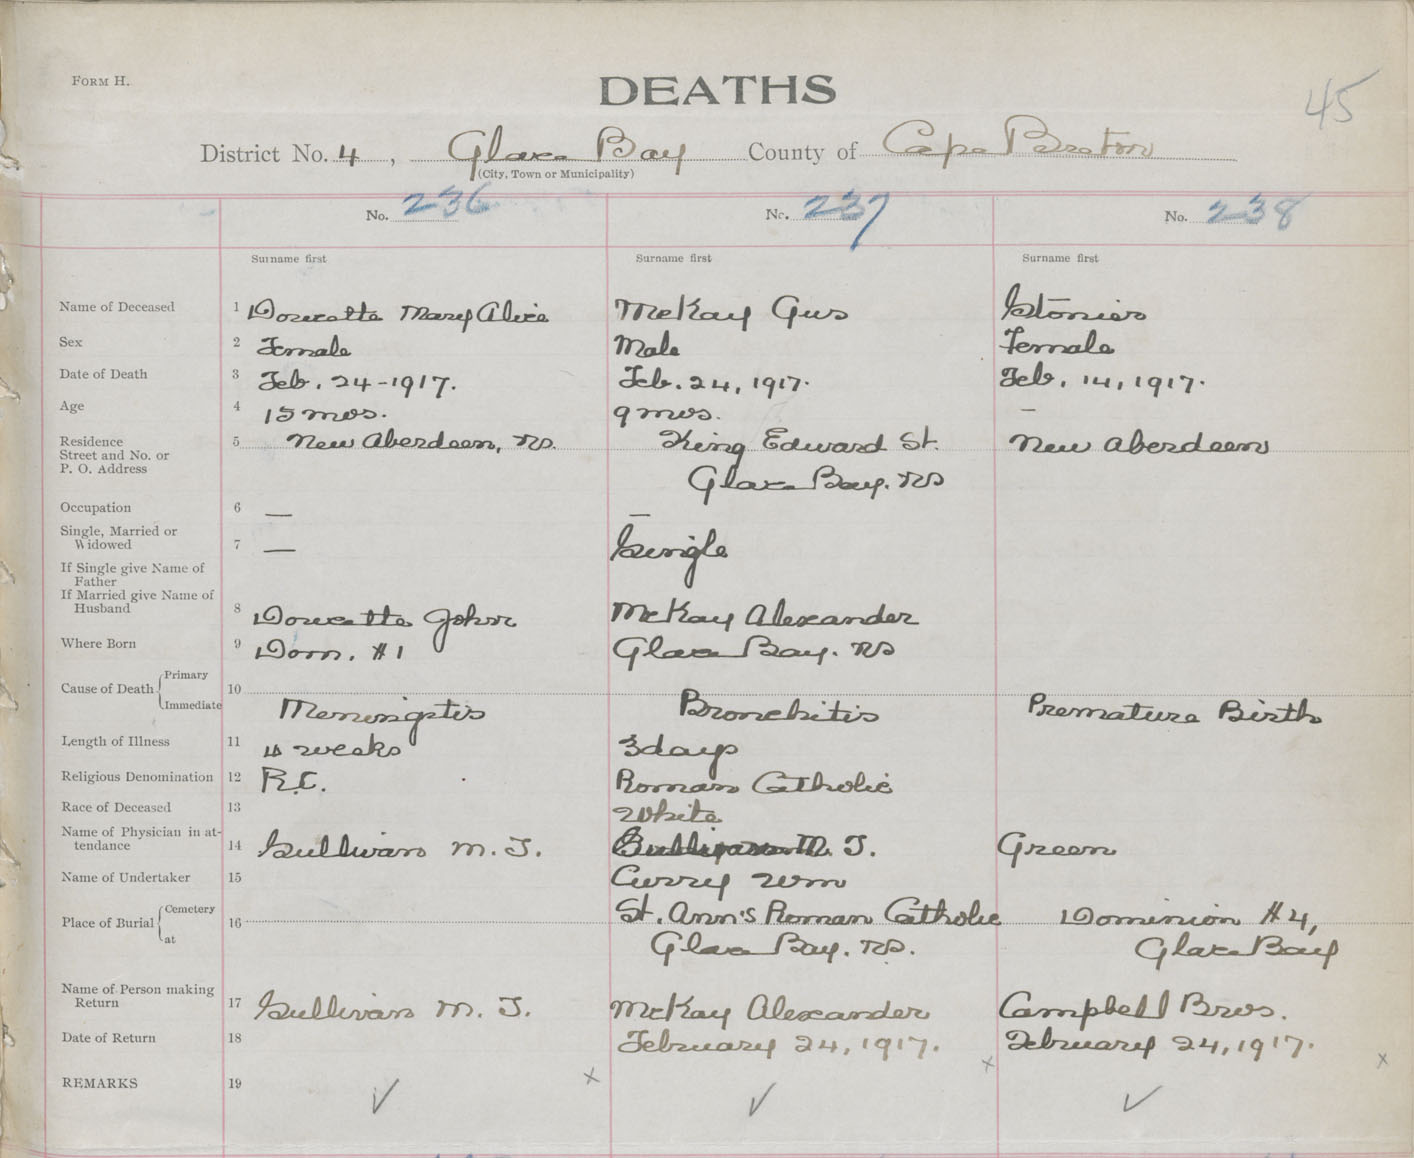 FORM H.
DEATHS
45
District No. 4, Glace Bay County of Cape Breton
(City, Town or Municipality)
No. 236 No. 237 No. 238
Surname first Surname first Surname first
Name of Deceased 1 Doucette Mary Alice McKay Gus Stonier
Sex 2 Female Male Female
Date of Death 3 Feb. 24-1917. Feb. 24, 1917. Feb. 14, 1917.
Age 4 15 mos. 9 mos. —
Residence 5 New Aberdeen, NS. King Edward St. New Aberdeen
Street and No. or
P. O. Address Glace Bay. NS
Occupation 6 — —
Single, Married or
Widowed 7 — Single
If Single give Name of
Father
If Married give Name of
Husband 8 Doucette John McKay Alexander
Where Born 9 Dom. #1 Glace Bay. NS
Cause of Death Primary 10
Immediate Meningitis Bronchitis Premature Birth
Length of Illness 11 weeks 3 days
Religious Denomination 12 R.C. Roman Catholic
Race of Deceased 13 White
Name of Physician in at-
tendance 14 Sullivan M. T. Sullivan M. T. Green
Name of Undertaker 15 Curry Wm
Place of Burial Cemetery 16 St. Ann's Roman Catholic Dominion #4,
at Glace Bay. NS. Glace Bay
Name of Person making
Return 17 Sullivan M. T. McKay Alexander Campbell Bros.
Date of Return 18 February 24, 1917. February 24, 1917.
REMARKS 19